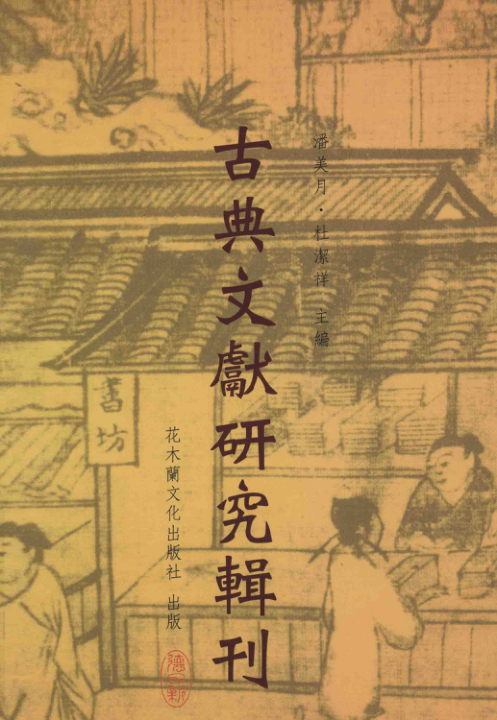 潘美月·杜潔祥 主編
古典文獻研究輯刊
花木蘭文化出版社 出版
書坊